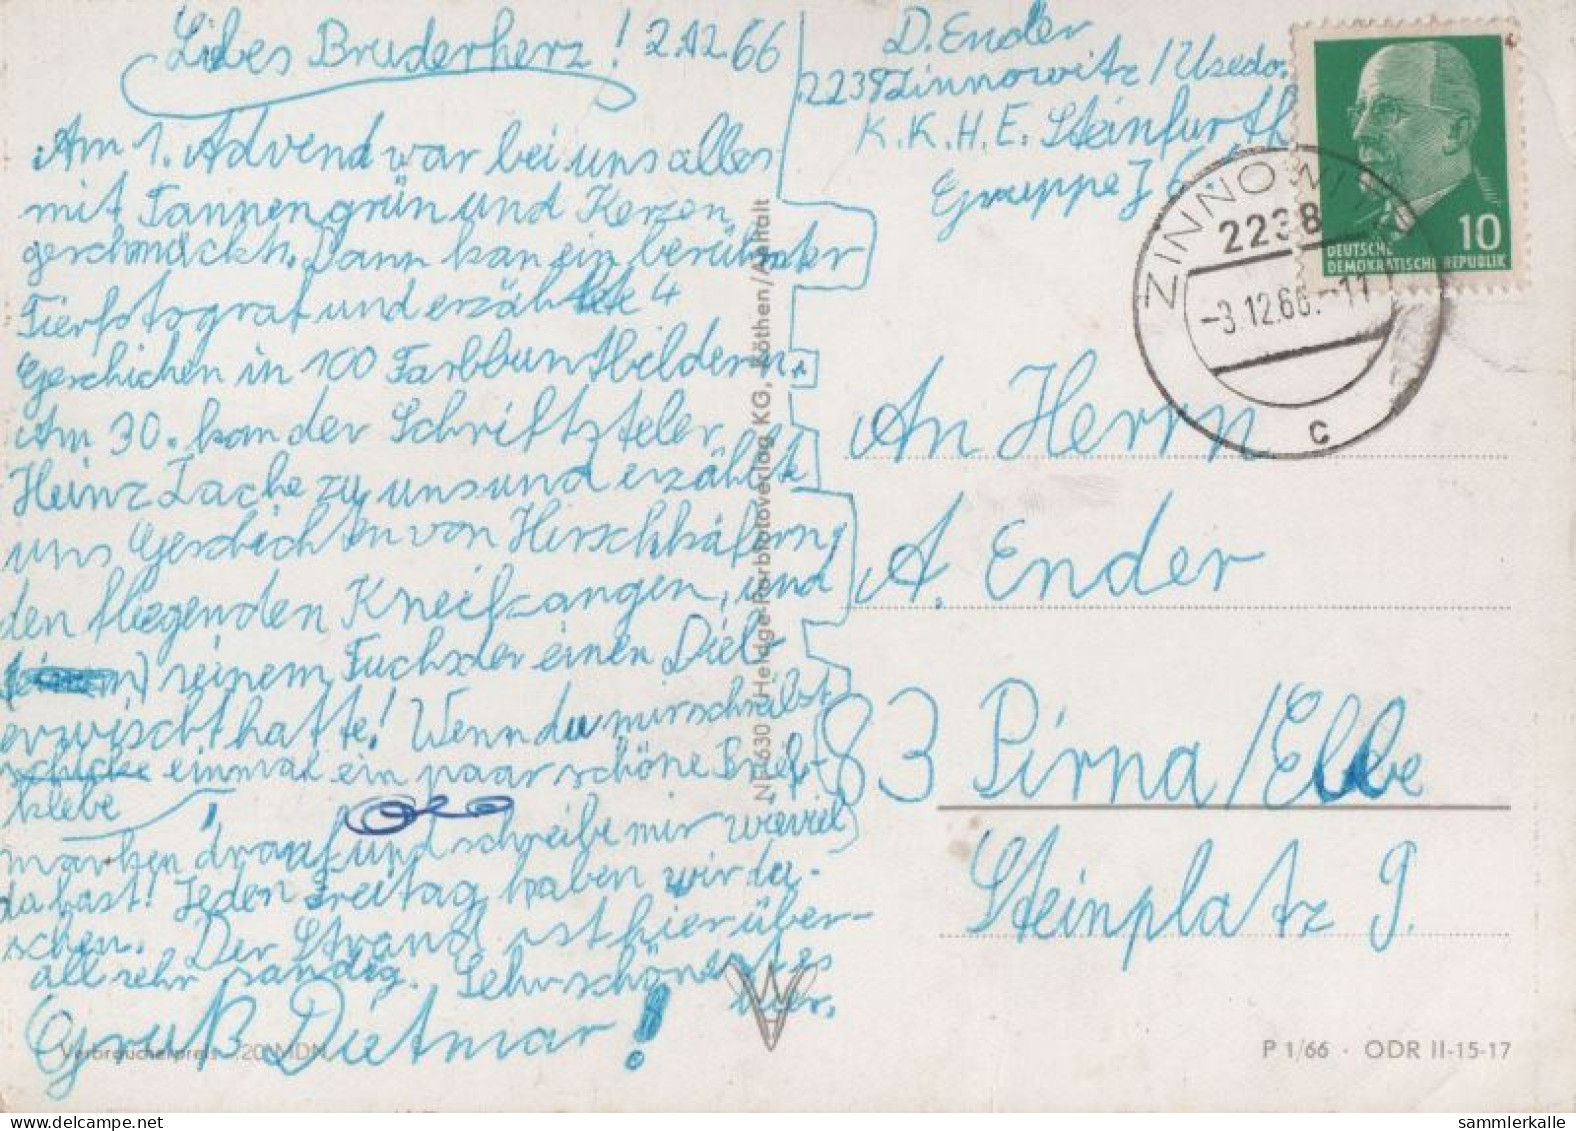 Liebes Bruderherz! 2.12.66
Am 1. Advend war bei uns alles
mit Tannengrün und Kerzen
geschmückt. Dann kan ein berühmter
Tierfotograf und erzählte 4
Geschichen in 100 Farbbuntbildern.
Am 30. kan der Schriftsteler
Heinz Lache zu uns und erzählte
uns Geschichten von Hirschkäfern,
den fliegenden Kneifzangen, und
seinem Fuchs der einen Dieb
erwischt hatte! Wenn du mir schreibst
schicke einmal ein paar schöne Brief-
klebe
marken drauf und schreibe mir wieviel
da hast! Jeden Freitag haben wir du-
schen. Der Strand ist hier über-
all sehr sandig. Sehr schön ist es
hier.
Gruß Dietmar!
Verbraucherpreis -,20 MDN
NF 630 Heldge-Farbfotoverlag KG, Köthen/Anhalt
D. Ender
2238 Zinnowitz/Usedo.
K.K.H.E. Steinfurth
Gruppe J 6
ZINNOWITZ
2238
-3.12.66.-17
c
10
DEUTSCHE
DEMOKRATISCHE REPUBLIK
An Herrn
A. Ender
83 Pirna/Elbe
Steinplatz 9.
P 1/66 · ODR II-15-17
sammlerkalle